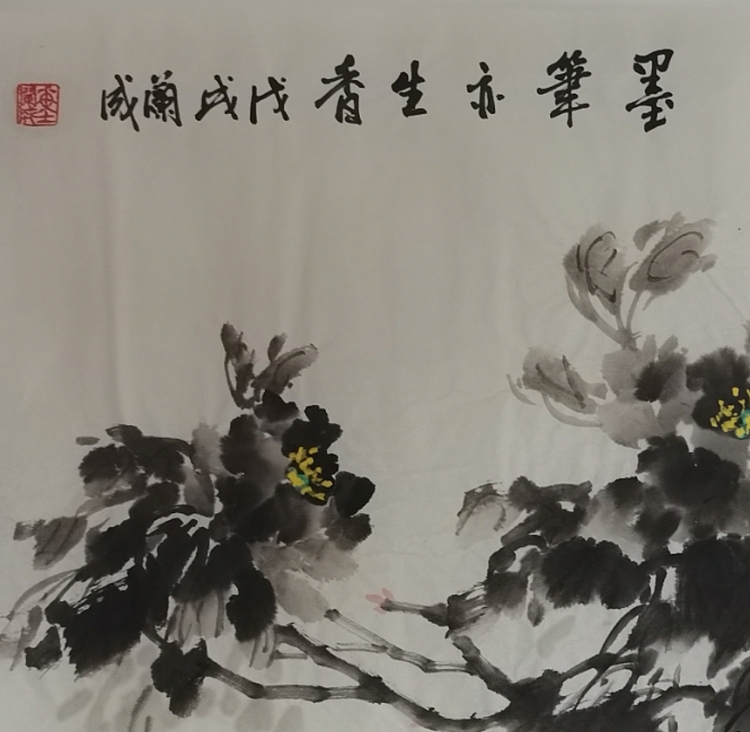 墨筆亦生香戊戌蘭成